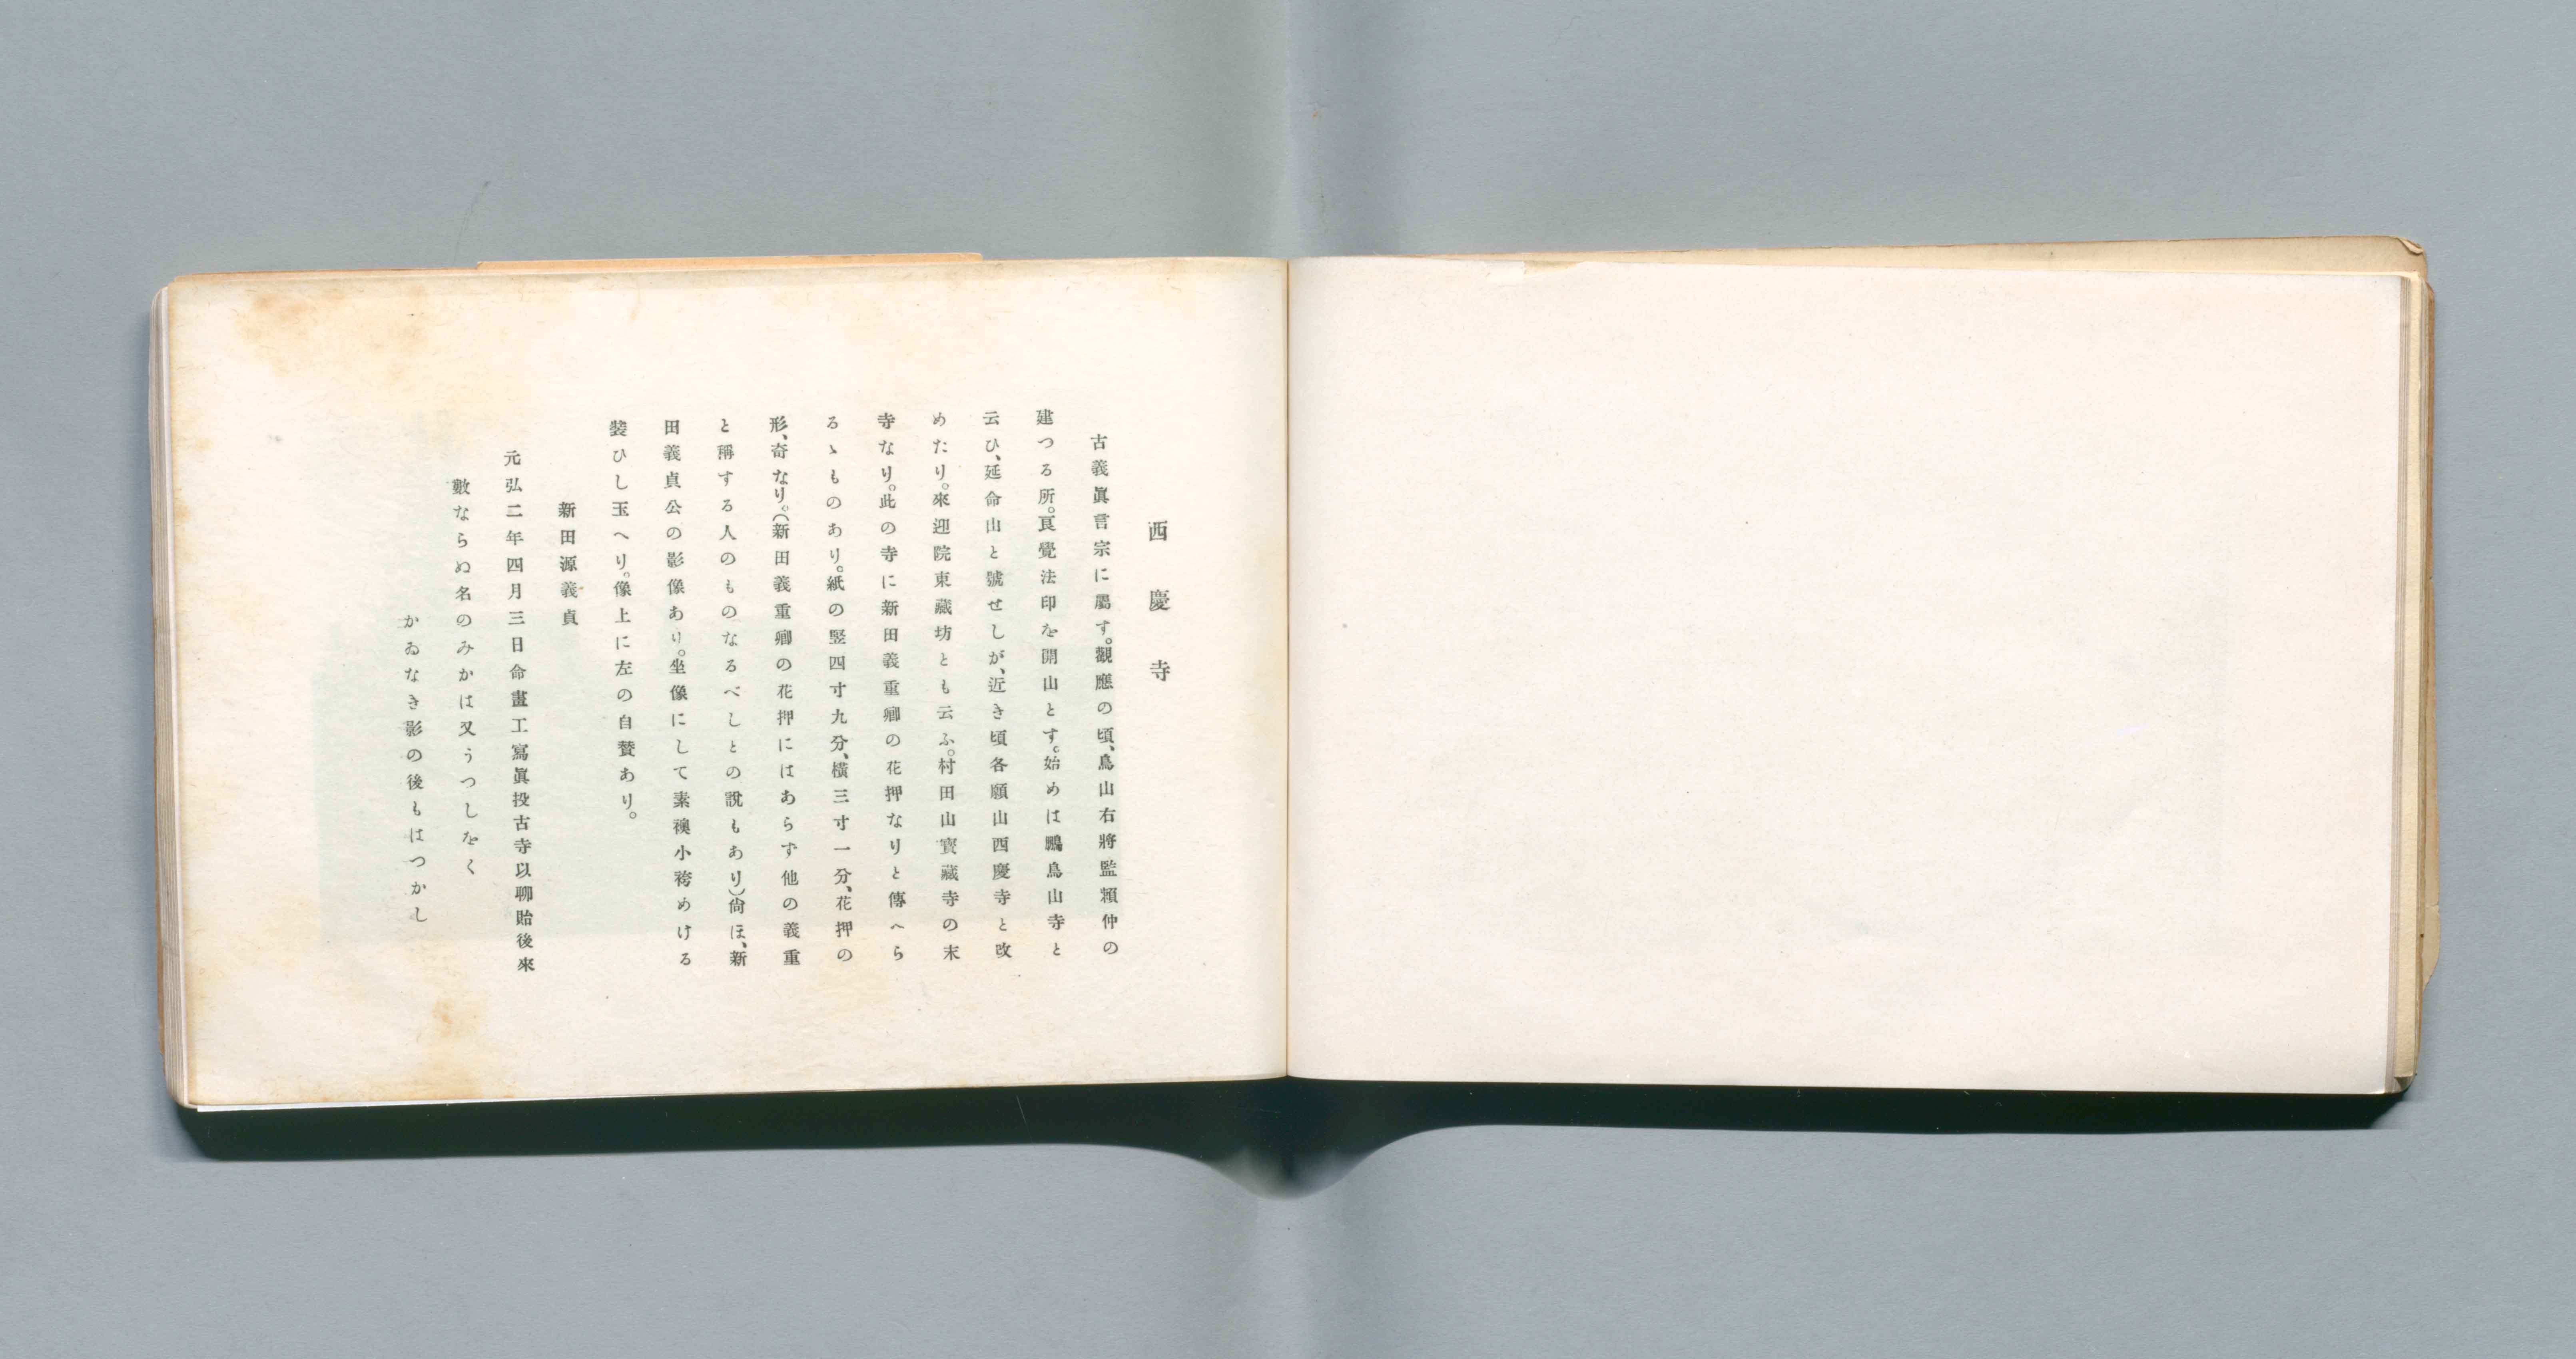 西慶寺
古義眞言宗に屬す。觀應の頃、鳥山右將監賴仲の
建つる所。良覺法印を開山とす。始めは鸭鳥山寺と
云ひ、延命山と號せしが、近き頃各願山西慶寺と改
めたり。來迎院東藏坊とも云ふ。村田山寳藏寺の末
寺なり。此の寺に新田義重卿の花押なりと傳へら
るゝものあり。紙の竪四寸九分、橫三寸一分、花押の
形、奇なり。(新田義重卿の花押にはあらず他の義重
と稱する人のものなるべしとの說もあり)尙ほ、新
田義貞公の影像あり。坐像にして素襖小袴めける
裝ひし玉へり。像上に左の自贊あり。
新田源義貞
元弘二年四月三日命畫工寫眞投古寺以聊貽後來
數ならぬ名のみかは又うつしをく
かゐなき影の後もはつかし